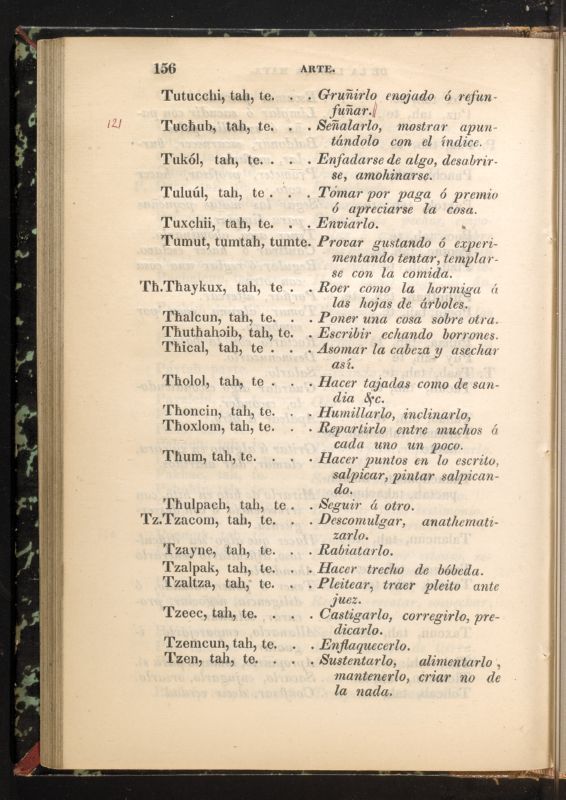 156 ARTE.
Tutucchi, tah, te. . . Gruñirlo enojado ó refun-
fuñar.
121
Tucħub, tah, te. . . Señalarlo, mostrar apun-
tándolo con el índice.
Tukól, tah, te. . . . Enfadarse de algo, desabrir-
se, amohinarse.
Tuluúl, tah, te . . . Tomar por paga ó premio
ó apreciarse la cosa.
Tuxchii, tah, te. . . Enviarlo.
Tumut, tumtah, tumte. Provar gustando ó experi-
mentando tentar, templar-
se con la comida.
Tħ. Tħaykux, tah, te . . Roer como la hormiga á
las hojas de árboles.
Tħalcun, tah, te. . . Poner una cosa sobre otra.
Tħutħahɔib, tah, te. . Escribir echando borrones.
Tħical, tah, te . . . Asomar la cabeza y asechar
así.
Tħolol, tah, te . . . Hacer tajadas como de san-
dia &c.
Tħoncin, tah, te. . . Humillarlo, inclinarlo,
Tħoxlom, tah, te. . . Repartirlo entre muchos á
cada uno un poco.
Tħum, tah, te. . . . Hacer puntos en lo escrito,
salpicar, pintar salpican-
do.
Tħulpach, tah, te . . Seguir á otro.
Tz. Tzacom, tah, te. . . Descomulgar, anathemati-
zarlo.
Tzayne, tah, te. . . Rabiatarlo.
Tzalpak, tah, te. . . Hacer trecho de bóbeda.
Tzaltza, tah, te. . . Pleitear, traer pleito ante
juez.
Tzeec, tah, te. . . . Castigarlo, corregirlo, pre-
dicarlo.
Tzemcun, tah, te. . . Enflaquecerlo.
Tzen, tah, te. . . . Sustentarlo, alimentarlo,
mantenerlo, criar no de
la nada.